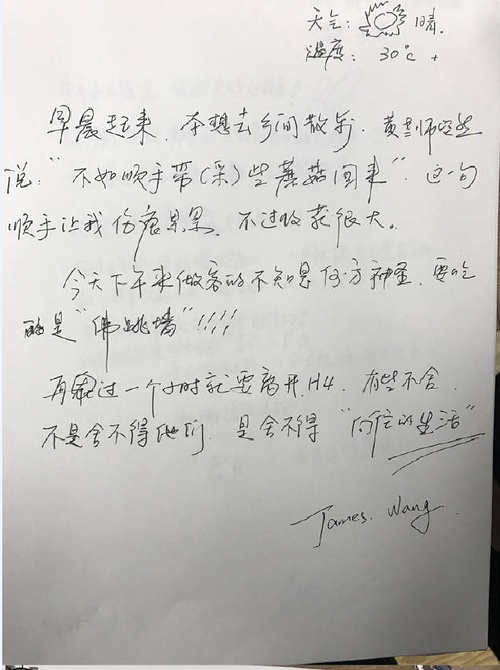 天气: 晴.
温度: 30℃ +
早晨起来, 本想去乡间散步, 黄老师突然
说:"不如顺手带(采)些蘑菇回来". 这一句
顺手让我伤痕累累, 不过收获很大。
今天下午来做客的不知是何方神圣, 要吃
的是"佛跳墙"!!!!
再过一个小时就要离开H4, 有些不舍.
不是舍不得他们, 是舍不得"向往的生活"
James. Wang.